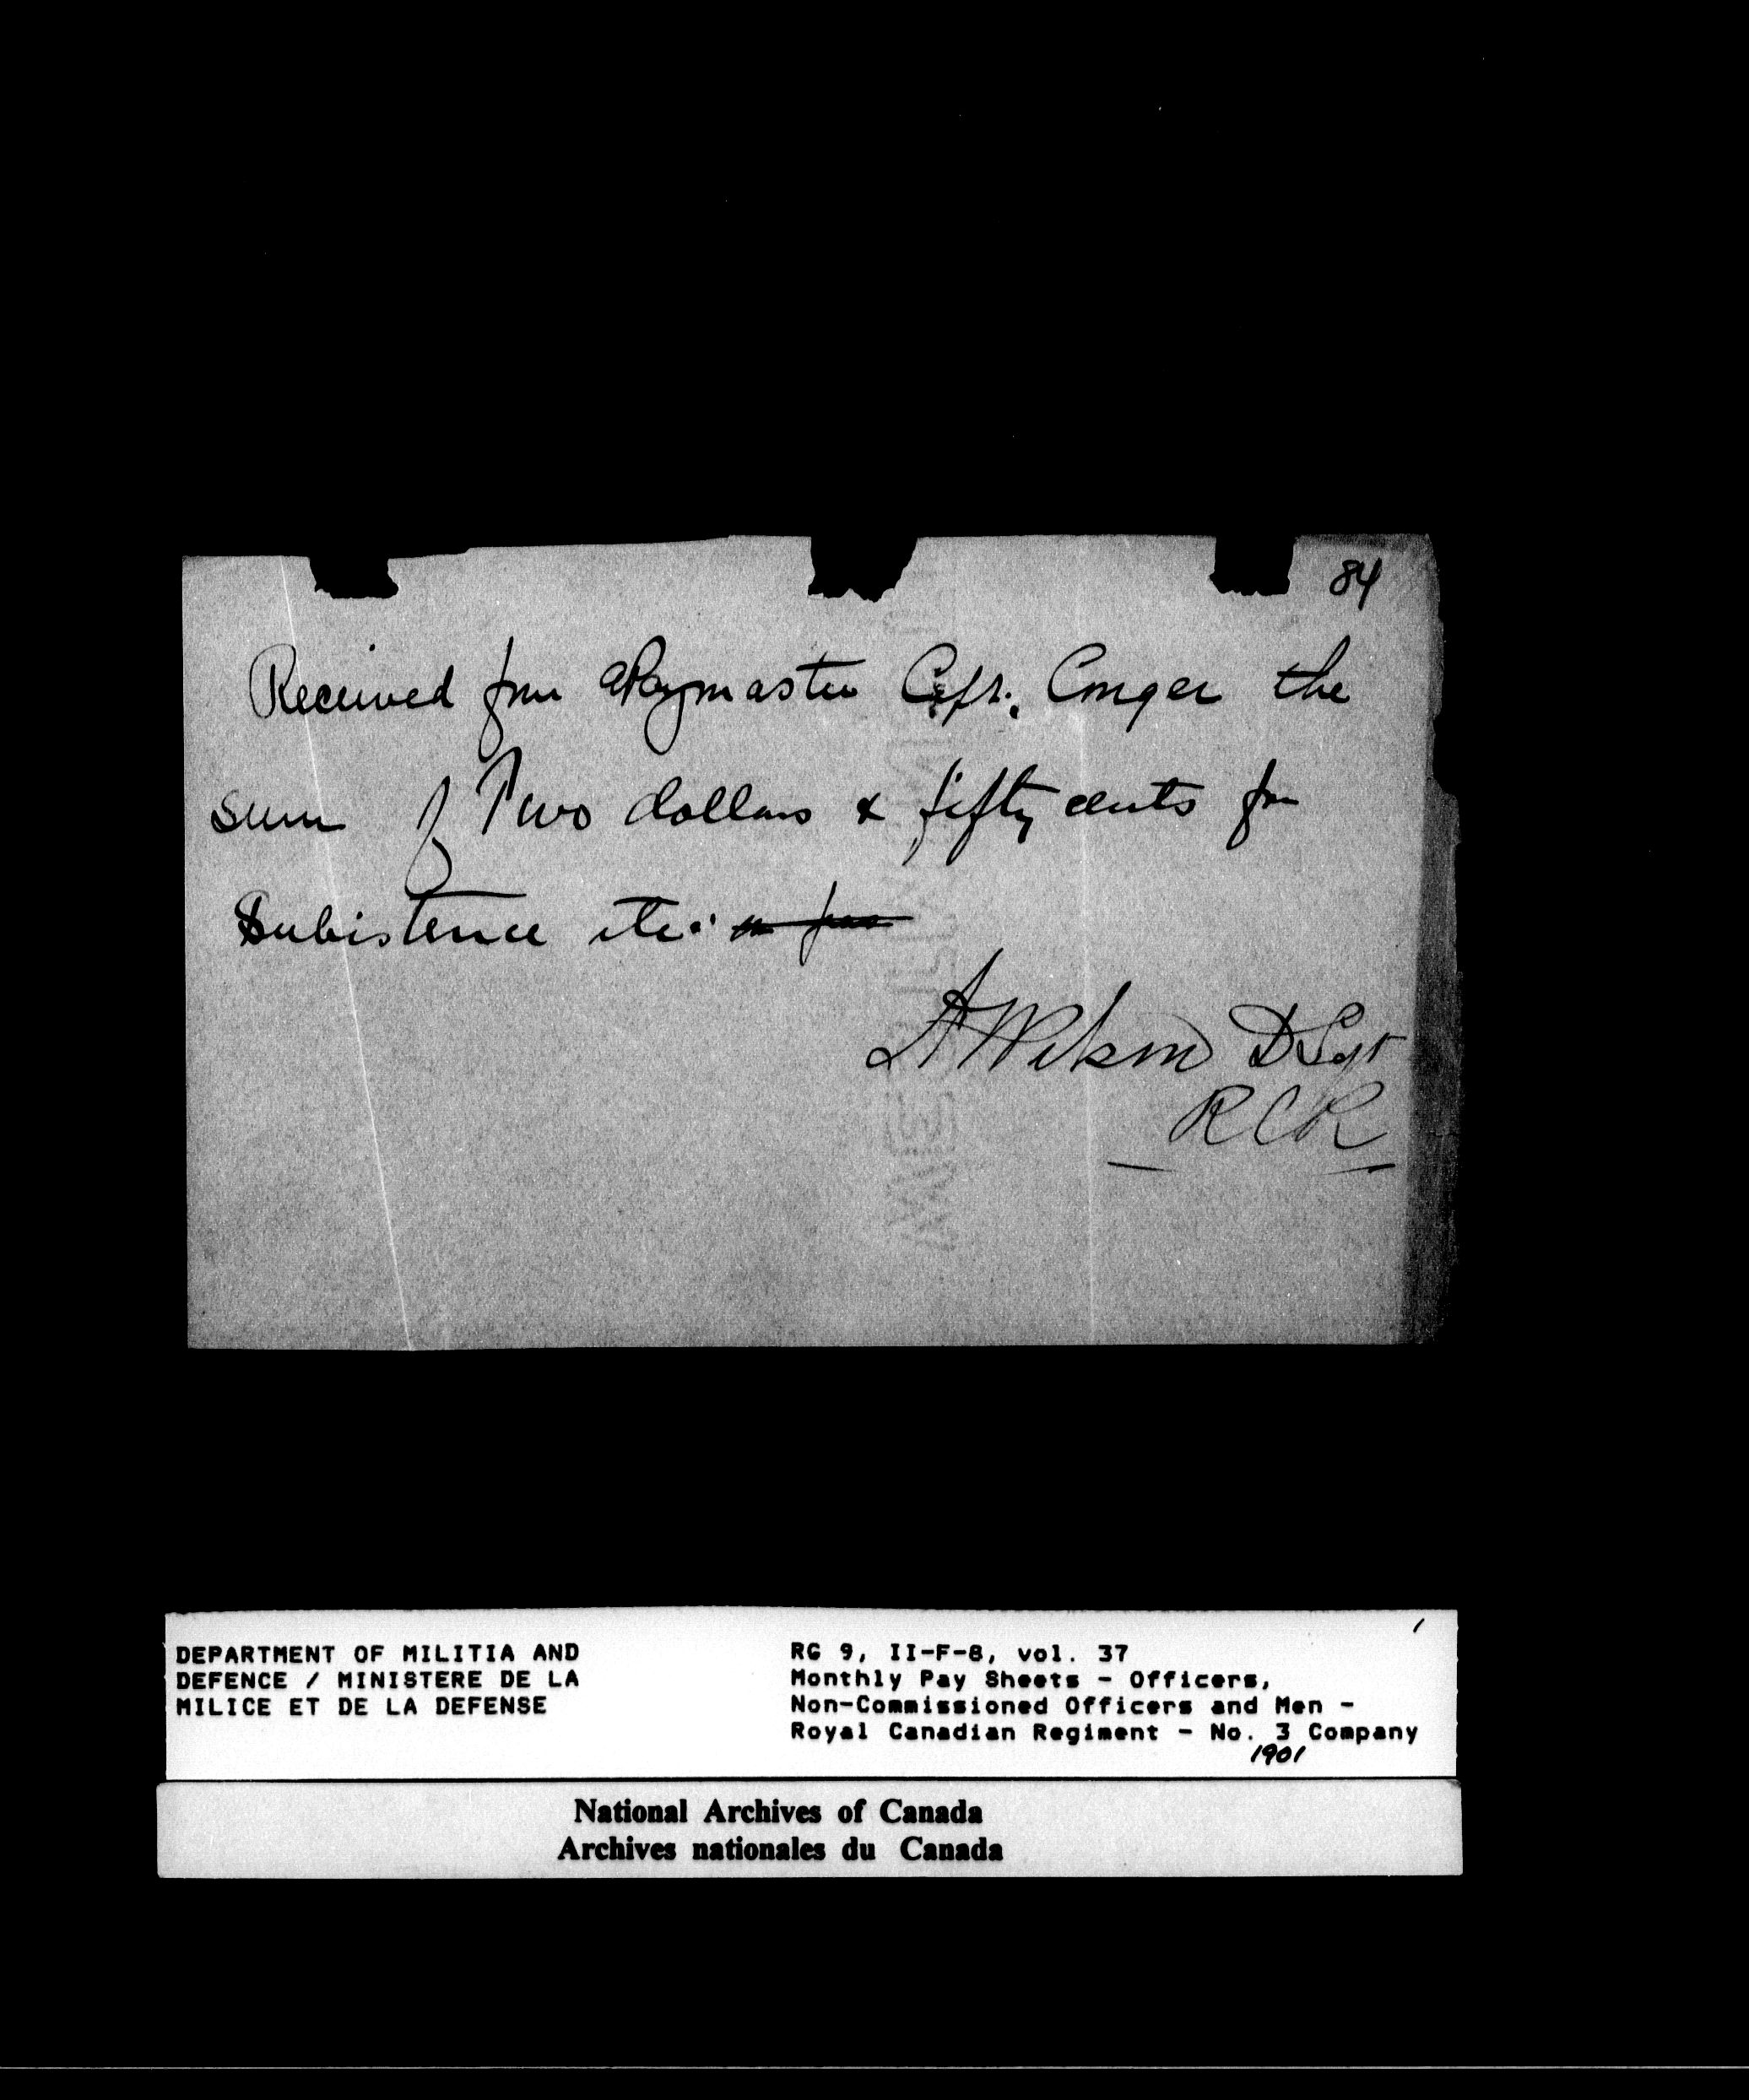 84
Received from Paymaster Capt. Conger the
sum of Two dollars & fifty cents for
Subistence etc:
A Wilson D Sgt
RCR
DEPARTMENT OF MILITIA AND
DEFENCE / MINISTERE DE LA
MILICE ET DE LA DEFENSE
RG 9, II-F-8, vol. 37
Monthly Pay Sheets - Officers,
Non-Commissioned Officers and Men -
Royal Canadian Regiment - No. 3 Company
1901
National Archives of Canada
Archives nationales du Canada